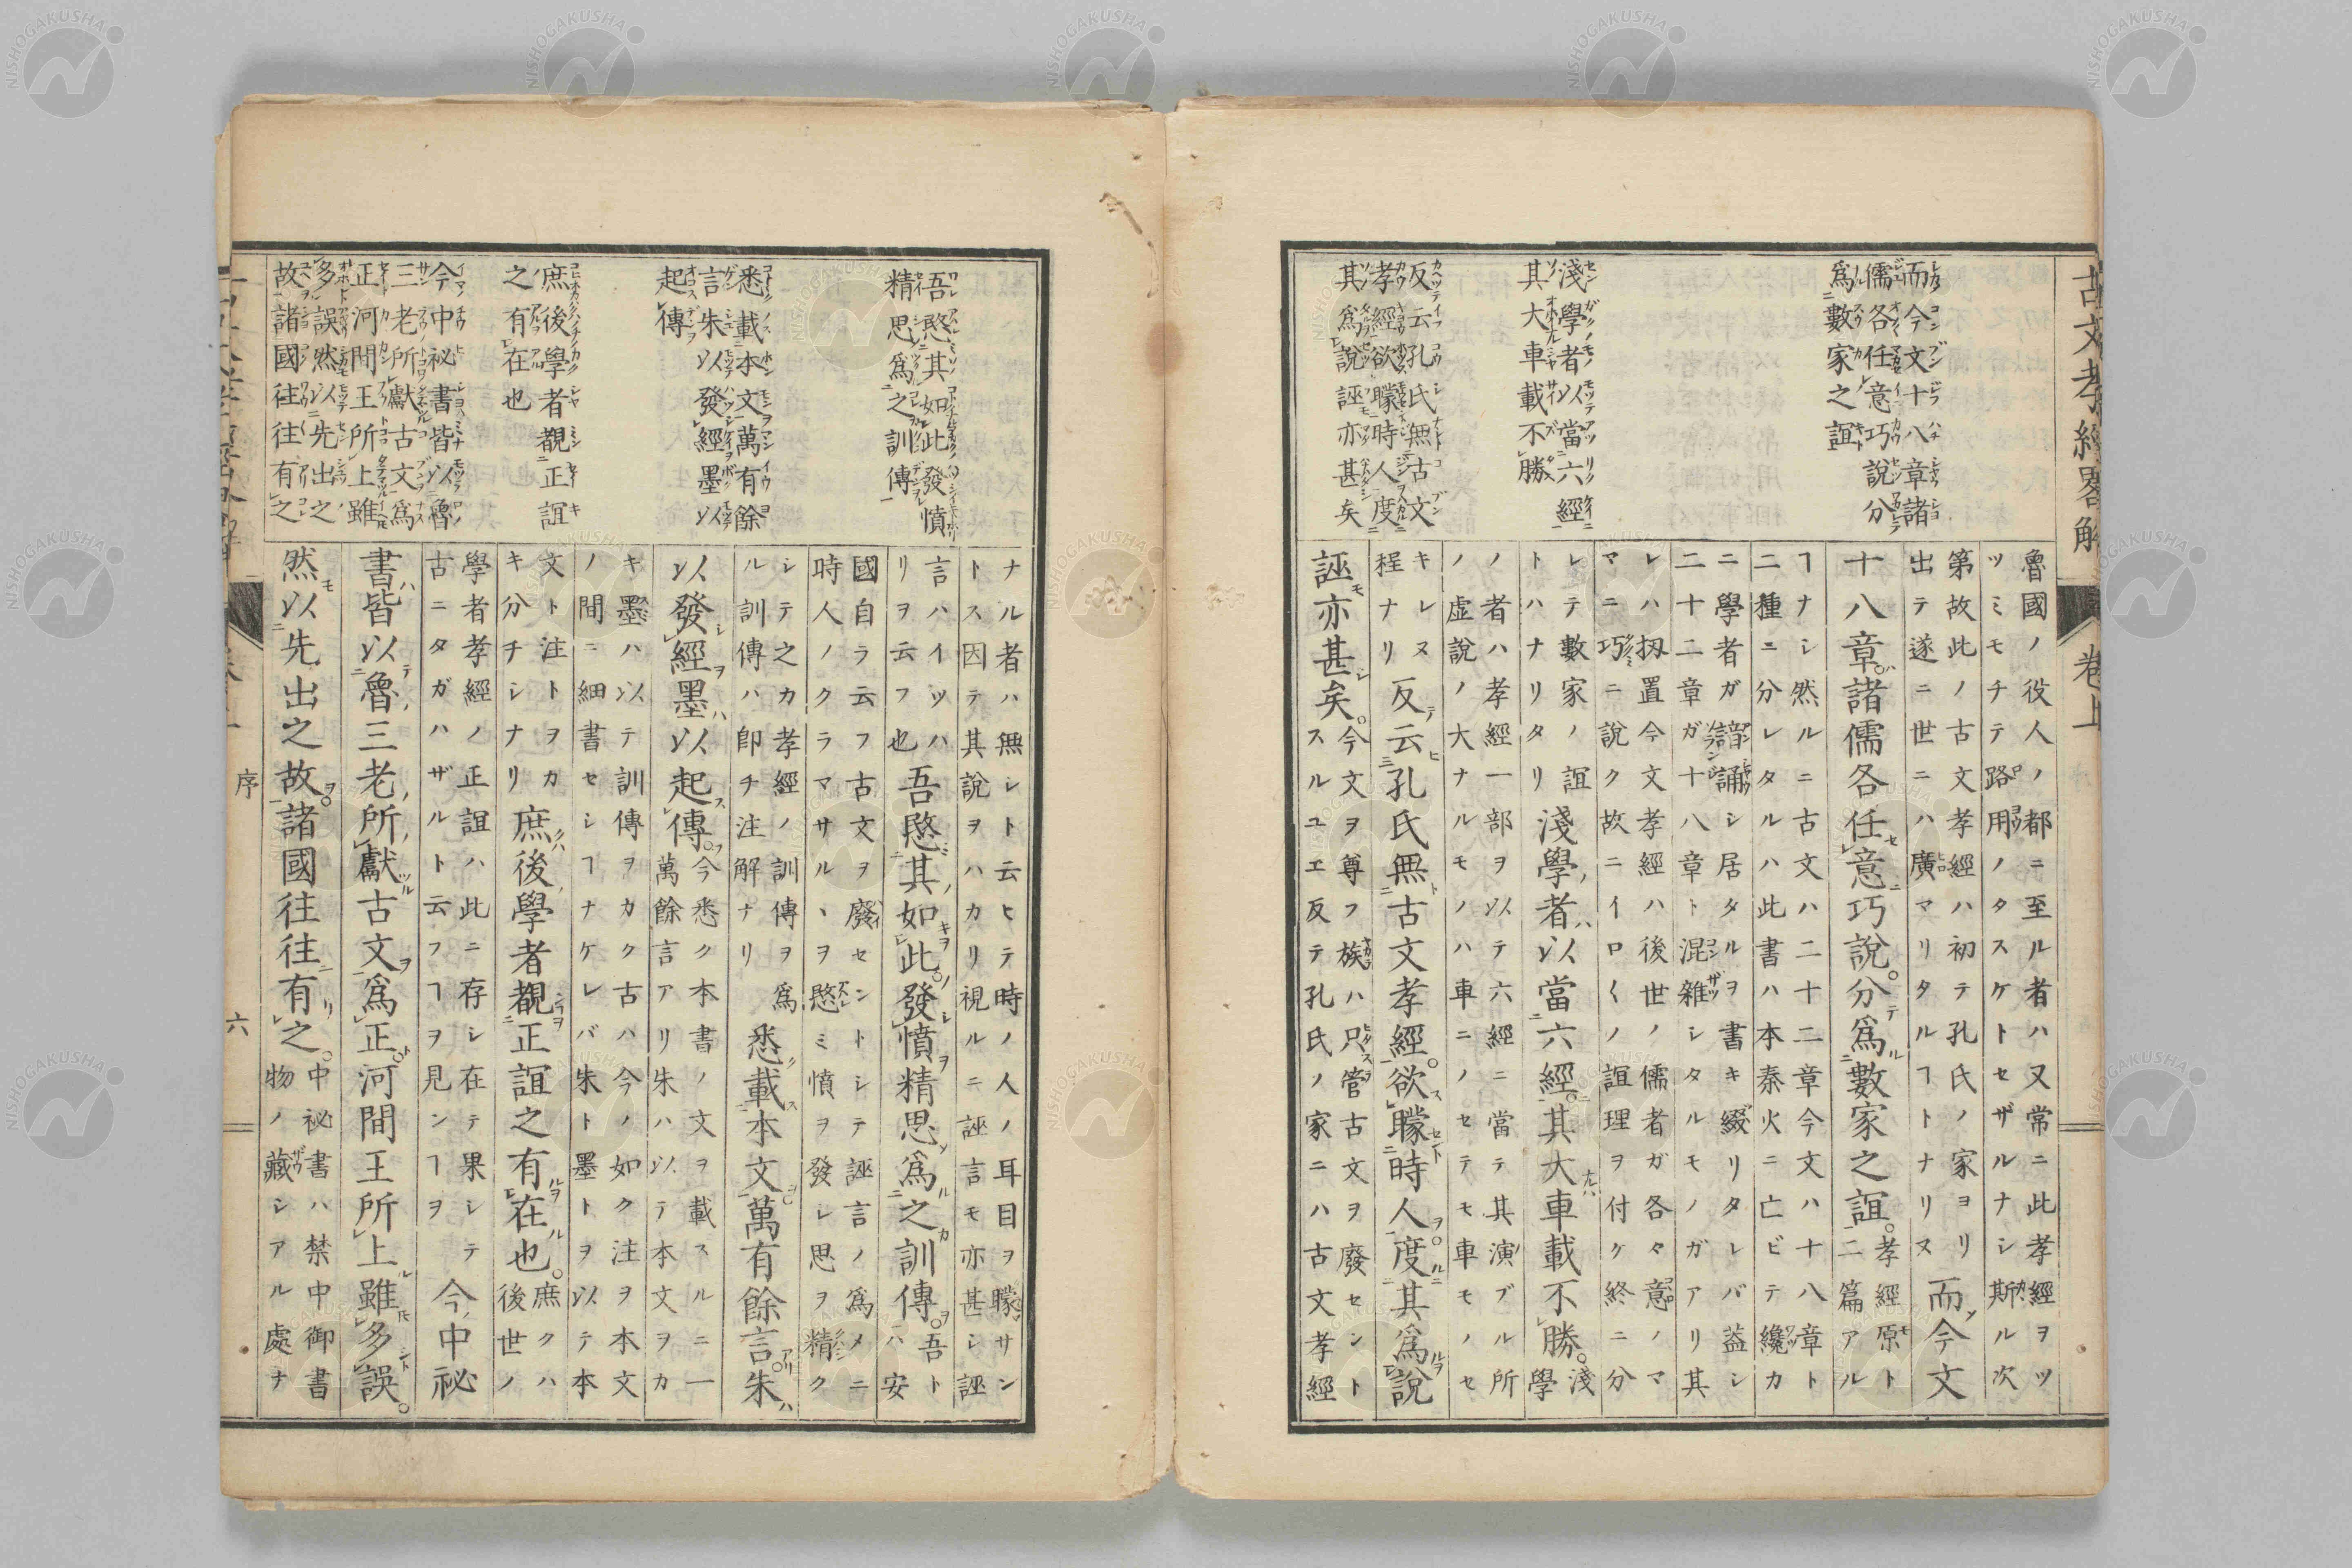 古文孝經畧解 卷上
而今文十八章諸
儒各任意巧說分
爲數家之誼
淺學者以當六經
其大車載不勝
反云孔氏無古文
孝經欲矇時人度
其爲說誣亦甚矣
魯國ノ役人ノ都ニ至ル者ハ又常ニ此孝經ヲツ
ツミモチテ路用ノタスケトセザルナシ斯ル次
第故此ノ古文孝經ハ初テ孔氏ノ家ヨリ
出テ遂ニ世ニハ廣マリタルヿトナリヌ
而今文
十八章。諸儒各任意巧說。分爲數家之誼。
孝經原ト
二篇アル
ヿナシ然ルニ古文ハ二十二章今文ハ十八章ト
二種ニ分レタルハ此書ハ本秦火ニ亡ビテ纔カ
ニ學者ガ諳誦シ居タルヲ書キ綴リタレバ益シ
二十二章ガ十八章ト混雜シタルモノガアリ其
レハ扨置今文孝經ハ後世ノ儒者ガ各々意ノマ
マニ巧ニ說ク故ニイロ〱ノ誼理ヲ付ケ終ニ分
レテ數家ノ誼
トハナリタリ
淺學者以當六經。其大車載不勝。
淺
學
ノ者ハ孝經一部ヲ以テ六經ニ當テ其演ブル所
ノ虛說ノ大ナルモノハ車ニノセテモ車モノセ
キレヌ
程ナリ
反云孔氏無古文孝經。欲矇時人。度其爲說
誣亦甚矣。
今文ヲ尊フ族ハ只管古文ヲ廢セント
スルユエ反テ孔氏ノ家ニハ古文孝經
吾愍其如此發憤
精思爲之訓傳
悉載本文萬有餘
言朱以發經墨以
起傳
庶後學者覩正誼
之有在也
今中祕書皆以魯
三老所獻古文爲
正河間王所上雖
多誤然以先出之
故諸國往往有之
ナル者ハ無シト云ヒテ時ノ人ノ耳目ヲ矇サン
トス因テ其說ヲハカリ視ルニ誣言モ亦甚シ誣
言ハイツハ
リヲ云フ也
吾愍其如此。發憤精思爲之訓傳。
吾ト
ハ安
國自ラ云フ古文ヲ廢セントシテ誣言ノ爲メニ
時人ノクラマサルヽヲ愍ミ憤ヲ發シ思ヲ精ク
シテ之カ孝經ノ訓傳ヲ爲
ル訓傳ハ卽チ注解ナリ
悉載本文。萬有餘言。朱
以發經墨以起傳。
今悉ク本書ノ文ヲ載スルニ一
萬餘言アリ朱ハ以テ本文ヲカ
キ墨ハ以テ訓傳ヲカク古ハ今ノ如ク注ヲ本文
ノ間ニ細書セシヿナケレバ朱ト墨トヲ以テ本
文ト注トヲカ
キ分チシナリ
庶後學者覩正誼之有在也。
庶クハ
後世ノ
學者孝經ノ正誼ハ此ニ存シ在テ果シテ
古ニタガハザルト云フヿヲ見ンヿヲ
今中祕
書皆以魯三老所獻古文爲正。河間王所上雖多誤。
然以先出之故。諸國往往有之。
中祕書ハ禁中御書
物ノ藏シアル處ナ
序 六
NISHOGAKUSHA